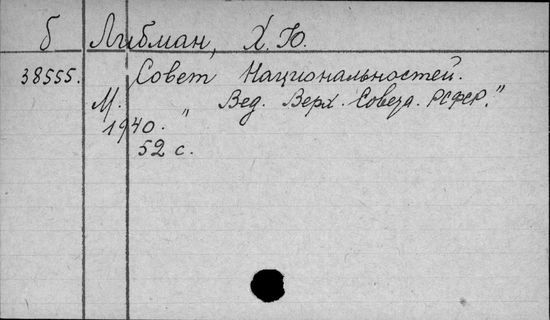 б Либман, Х. Ю.
38555. Совет Национальностей.
М. „Вед. Верх. Совета. РСФСР."
1940.
52 с.